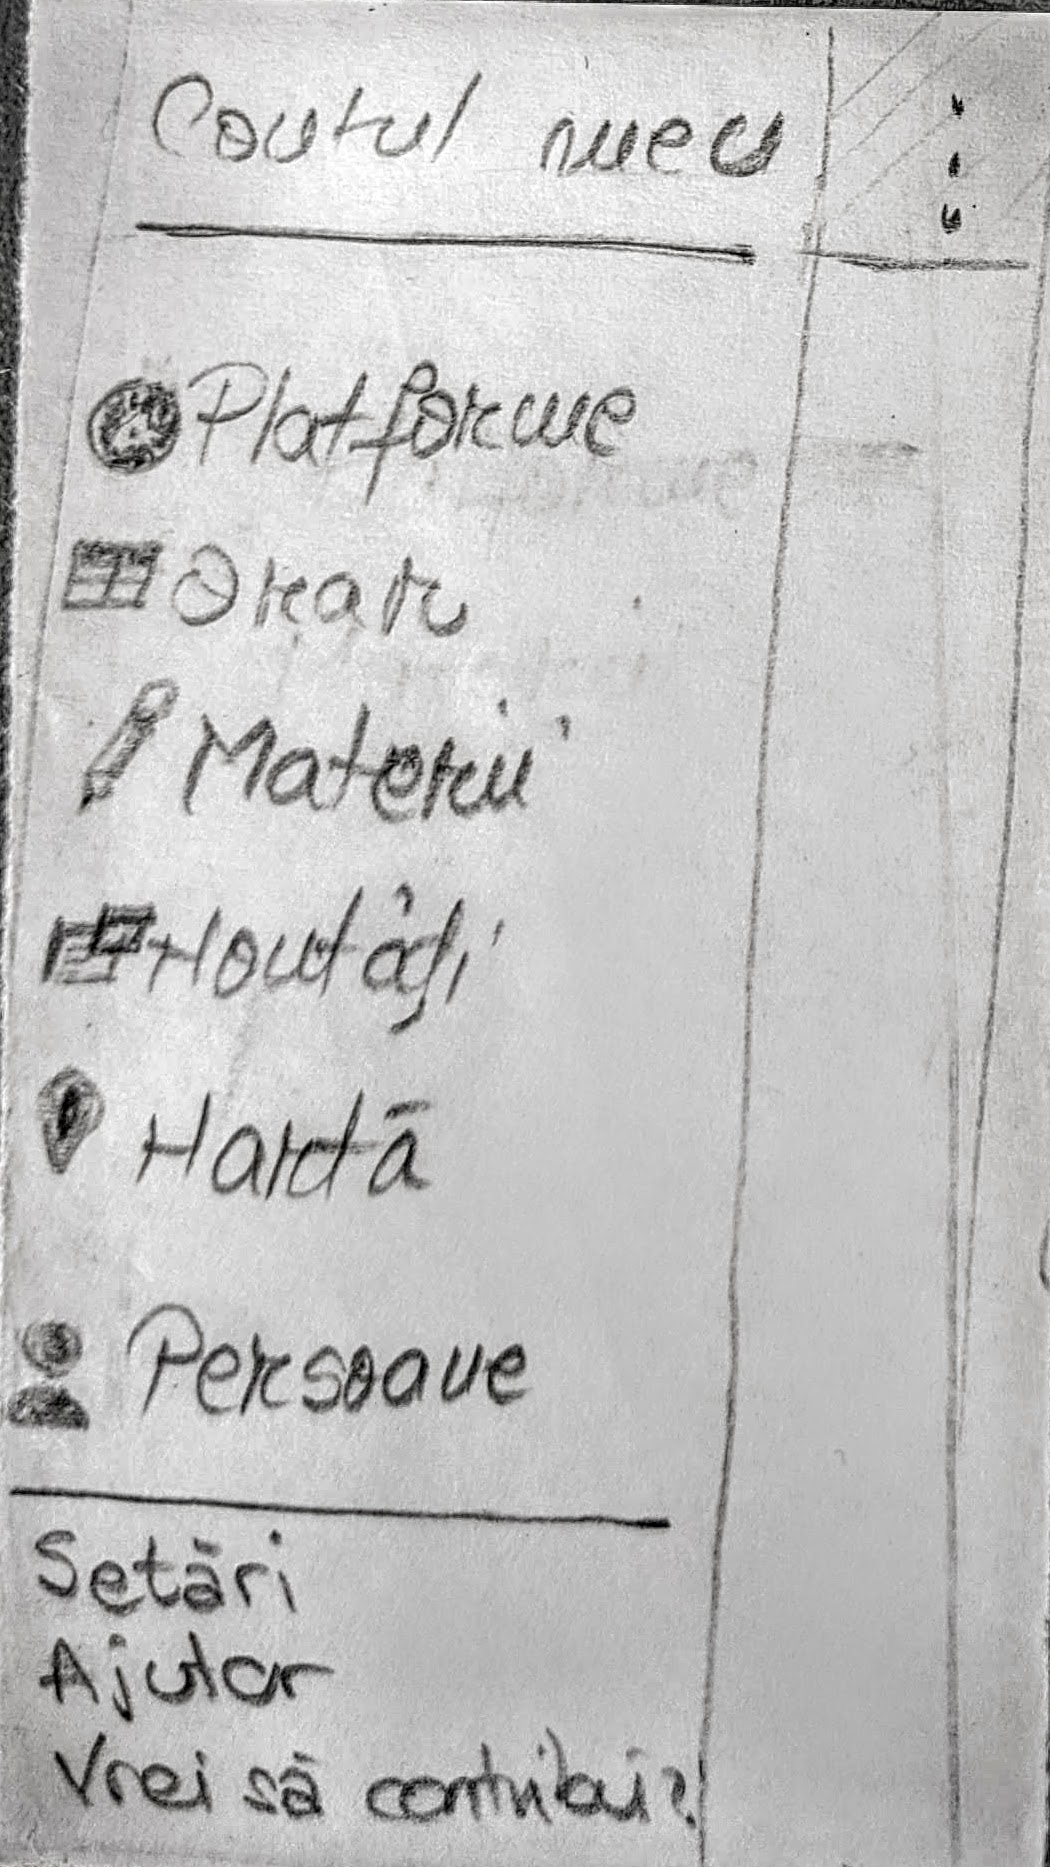 Contul meu
Platforme
Orar
Materii
Noutăți
Hartă
Persoane
Setări
Ajutor
Vrei să contribui?